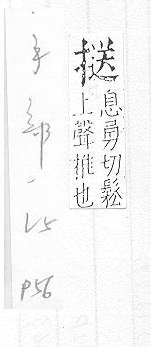 息勇切鬆
上聲推也
手部
L5
P56